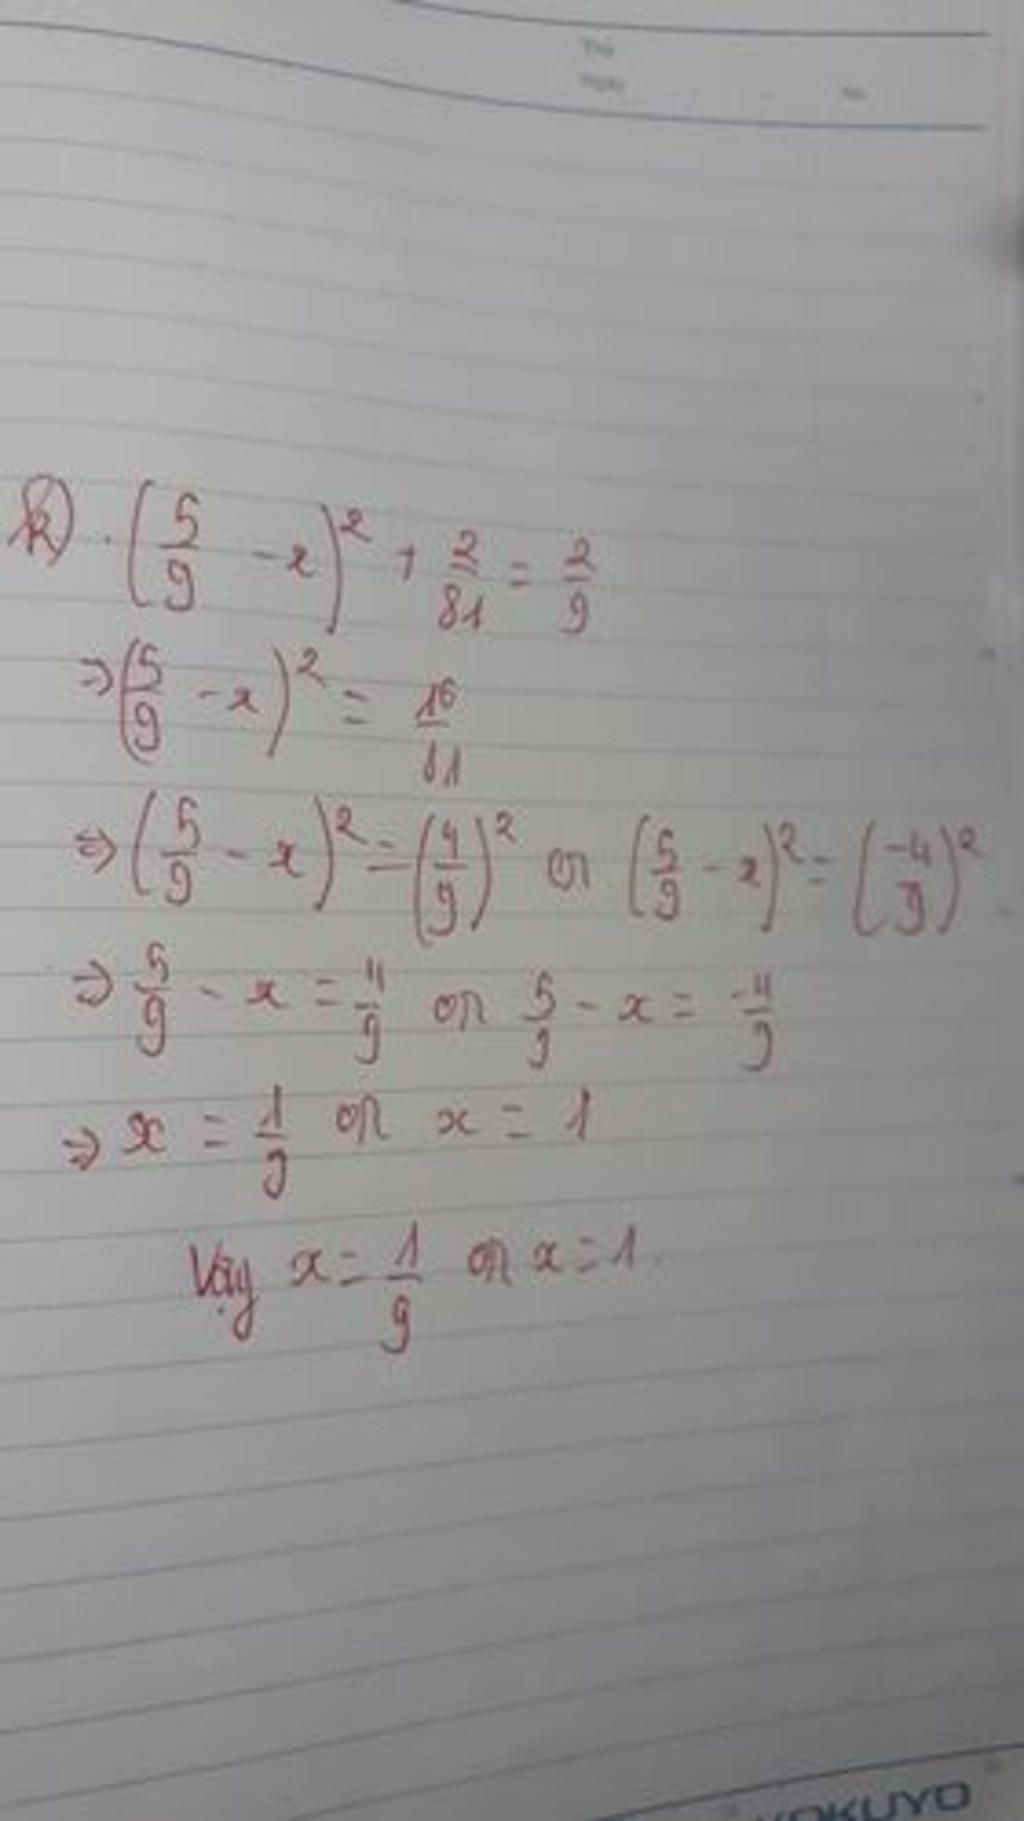 Thứ
Ngày . . No.
k) . (5/9 - x)² + 2/81 = 2/9
⇒ (5/9 - x)² = 16/81
⇒ (5/9 - x)² = (4/9)² or (5/9 - x)² = (-4/9)²
⇒ 5/9 - x = 4/9 or 5/9 - x = -4/9
⇒ x = 1/9 or x = 1
Vậy x = 1/9 or x = 1.
KOKUYO